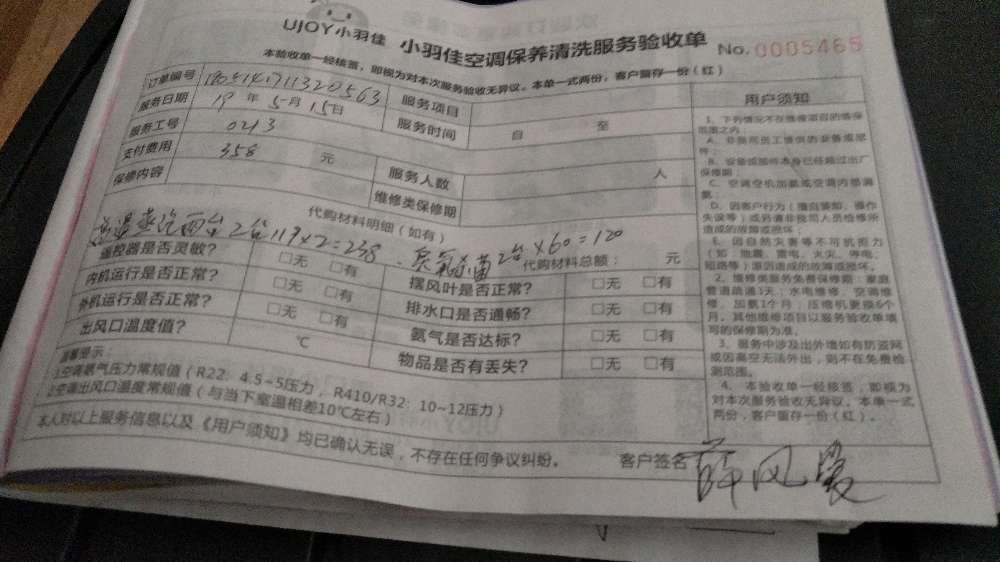 UJOY小羽佳 小羽佳空调保养清洗服务验收单 No.0005465
本验收单一经核签，即视为对本次服务验收无异议。本单一式两份，客户留存一份（红）
订单编号 服务项目
服务日期 19年5月15日 服务时间 自 至
服务工号 0213
支付费用 358 元 服务人数 人
保修内容 维修类保修期
代购材料明细（如有）
高温蒸汽两台 2台119×2=238 . 臭氧杀菌 2台×60=120
代购材料总额： 元
遥控器是否灵敏？ □无 □有 摆风叶是否正常？ □无 □有
内机运行是否正常？ □无 □有 排水口是否通畅？ □无 □有
外机运行是否正常？ □无 □有 氨气是否达标？ □无 □有
出风口温度值？ ℃ 物品是否有丢失？ □无 □有
温馨提示：
1.空调氨气压力常规值（R22：4.5~5压力，R410/R32：10~12压力）
2.空调出风口温度常规值（与当下室温相差10℃左右）
本人对以上服务信息以及《用户须知》均已确认无误，不存在任何争议纠纷。 客户签名
用户须知
1、下列情况不在维修项目的维保
范围之内：
A、非我司员工提供的设备或部
件；
B、设备或部件本身已经超过出厂
保修期；
C、空调空机加氨或空调内部漏
氨；
D、因客户行为（擅自装卸、操作
失误等）或另请非我司人员检修所
造成的故障或损坏；
E、因自然灾害等不可抗拒力
（如：地震、雷电、火灾、停电、
短路等）原因造成的故障或损坏。
2、维修类服务免费保修期：家庭
管道疏通1天；水电维修、空调维
修、加氨1个月；压缩机更换6个
月。其他维修项目以服务验收单填
写的保修期为准。
3、服务中涉及出外墙如有防盗网
或因高空无法外出，则不在免费检
测范围。
4、本验收单一经核签，即视为
对本次服务验收无异议。本单一式
两份，客户留存一份（红）。